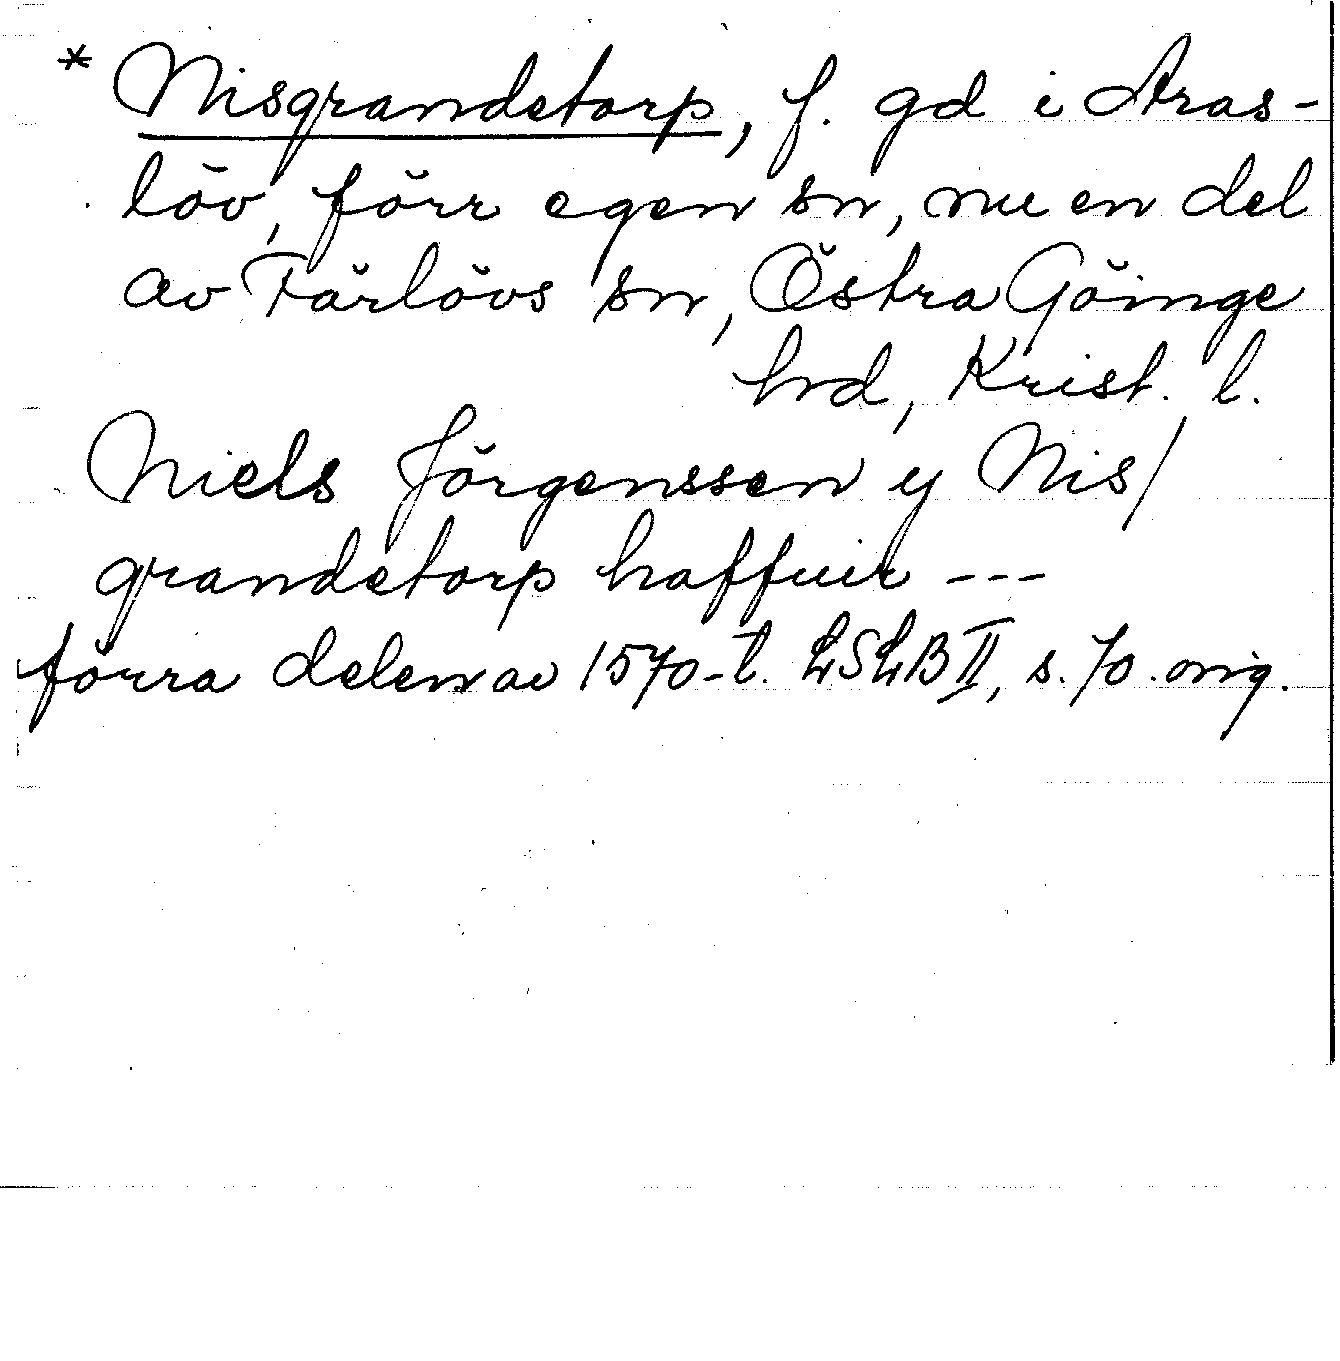 * Nisgrandetorp, f. gd i Aras-
löv, förr egen sn, nu en del
av Färlövs sn, Östra Göinge
hrd, Krist. l.
Niels Jörgenssen y Nis/
grandetorp haffuir ---
förra delen av 1570-t. LSLB II, s. 70. orig.